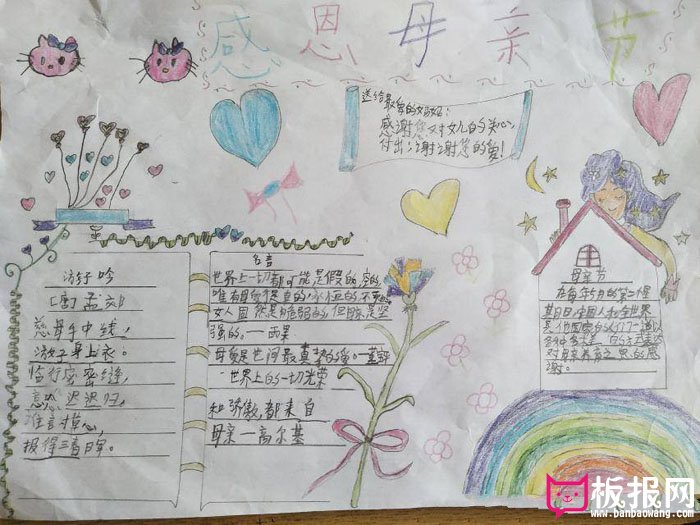 感恩母亲节
送给最爱的妈妈:
感谢您对女儿的关心
付出,谢谢您的爱!
游子吟
[唐]孟郊
慈母手中线,
游子身上衣。
临行密密缝,
意恐迟迟归,
谁言寸草心,
报得三春晖。
名言
世界上一切都可能是假的,空的
唯有母爱是真的永恒的不灭的
女人固然是脆弱的但母亲是坚
强的。一雨果
母爱是世间最
世界上的一切光荣
和骄傲,都来自
母亲一高尔基
母亲节
在每年5月的第二个星
期日日全国人和全世界
对母亲养育之恩的感
谢。
板报网
www.banbaowang.com